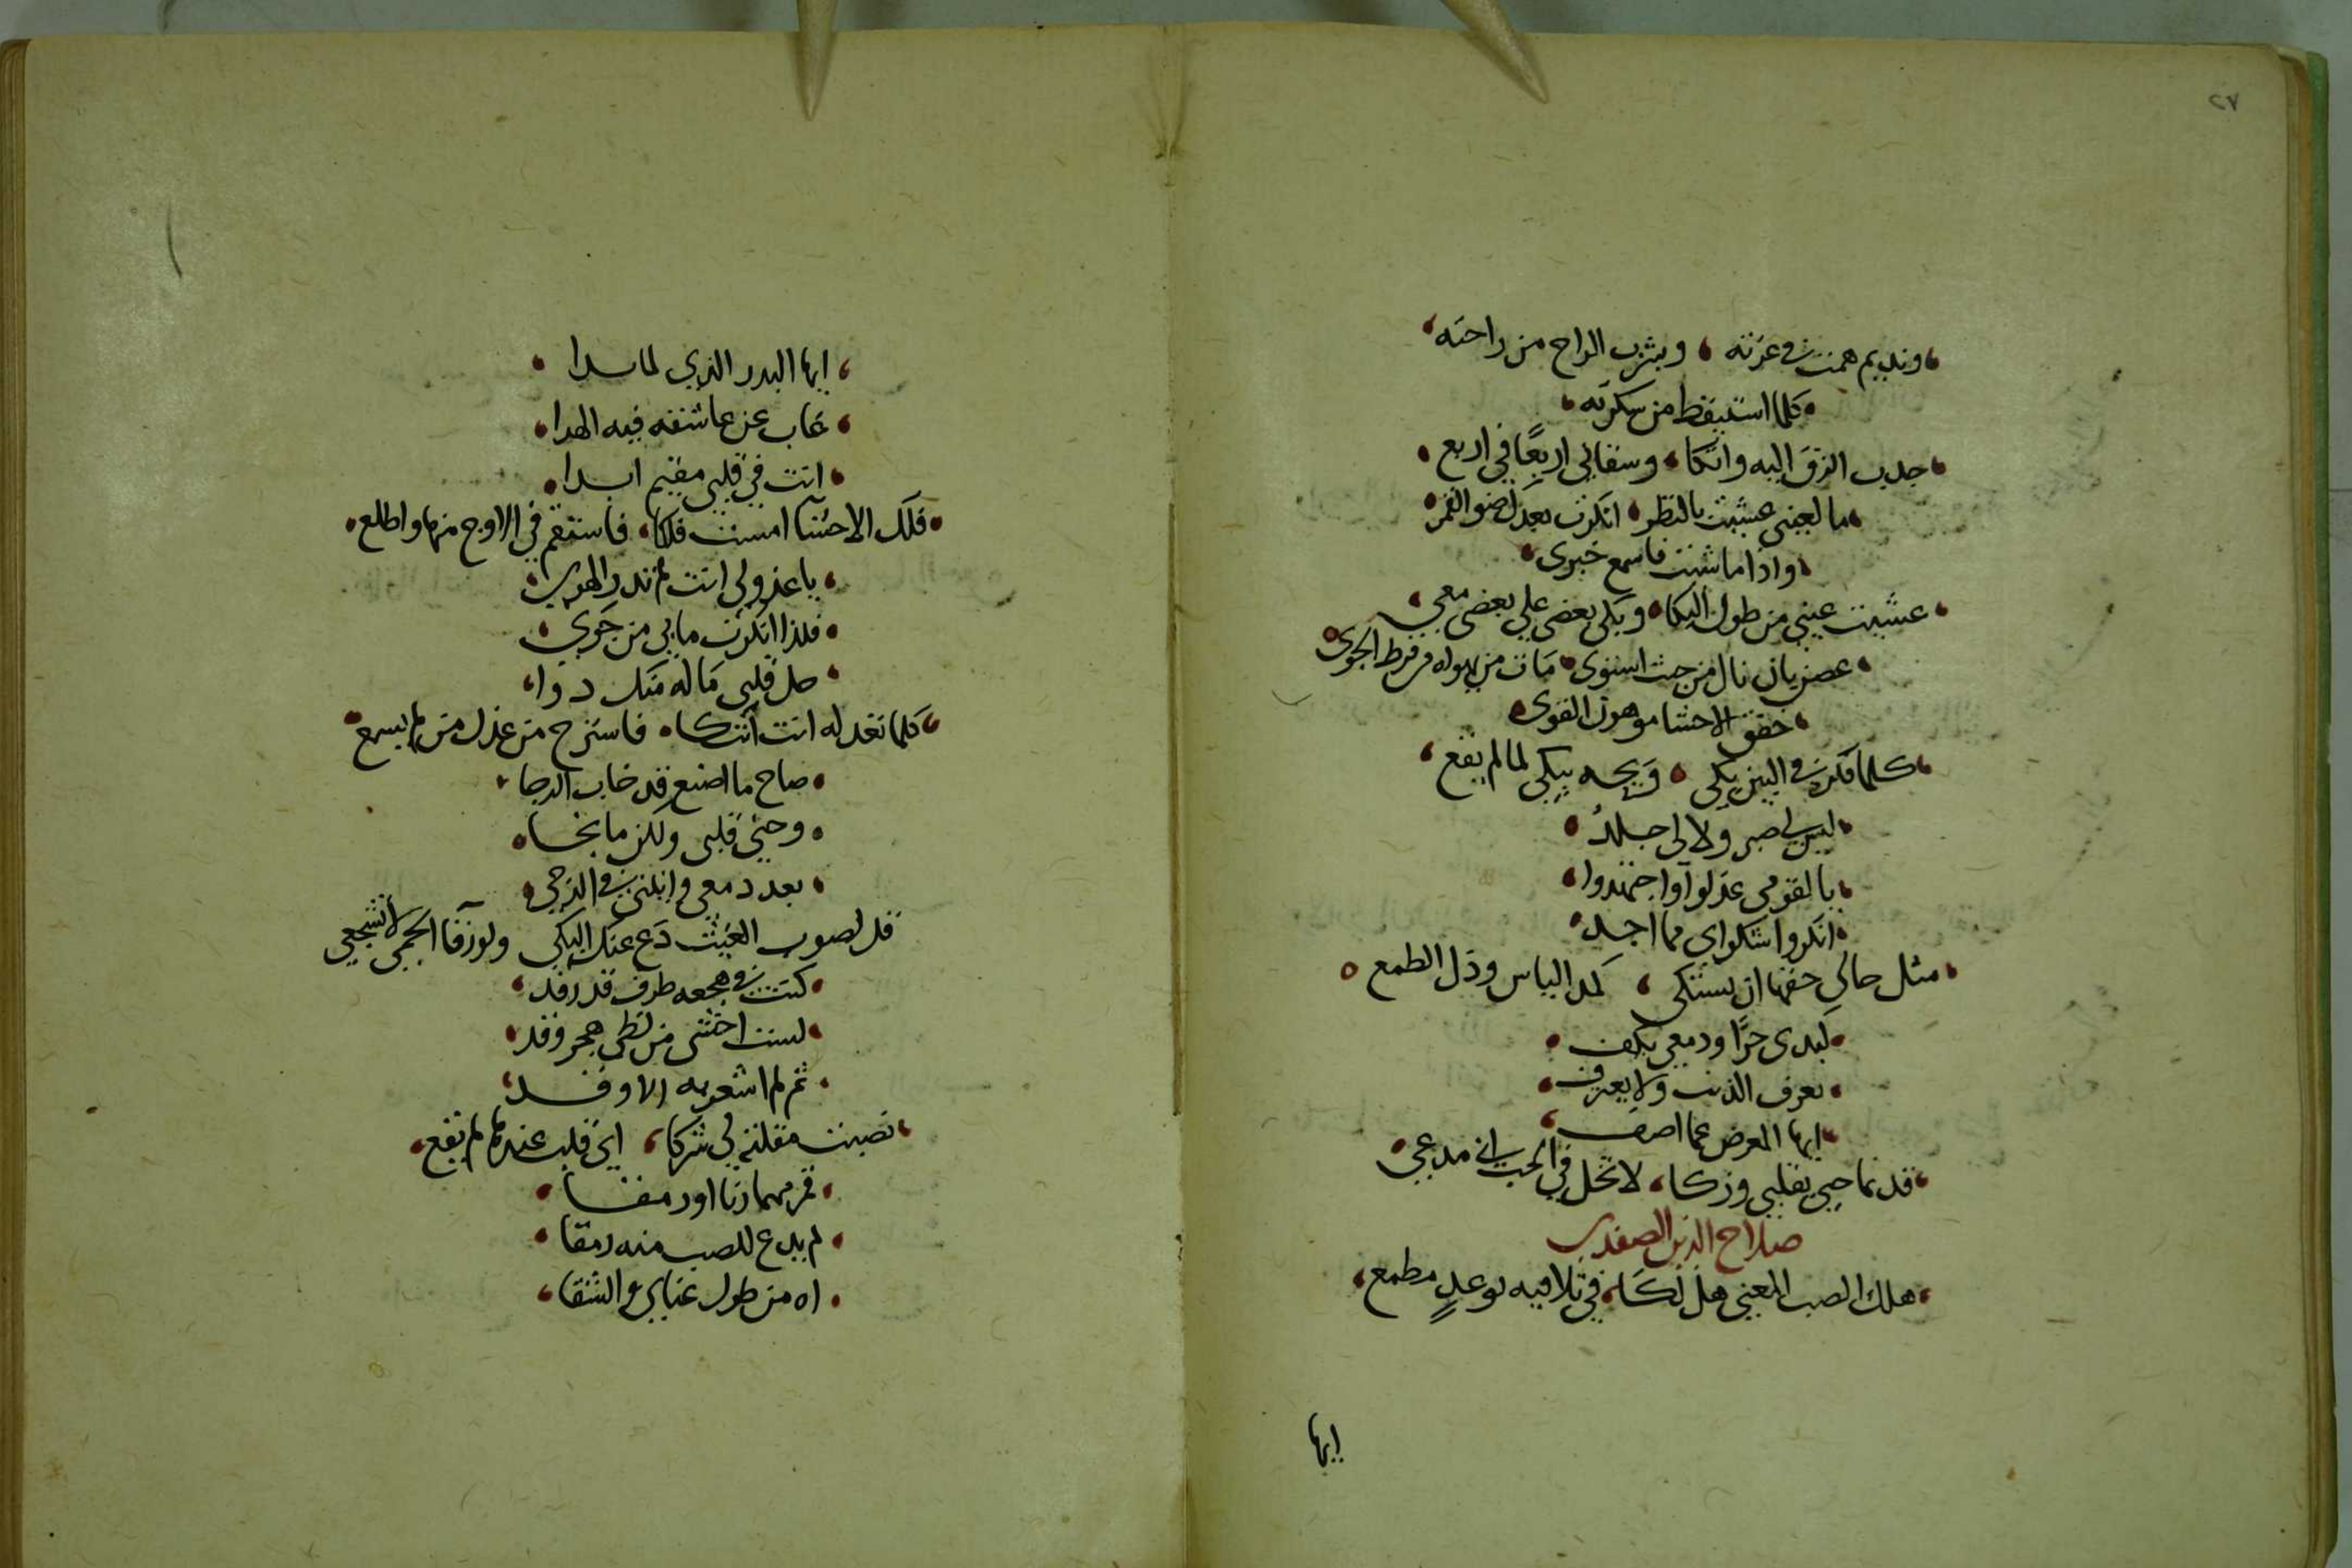 ٢٧
ونديم همت في غرته وبشرب الراح من راحته
كلما استيقظ من سكرته
جدب الزق اليه واتكا وسقاني اربعًا في اربع
ما لعيني عشيت بالنظر انكرت بعدك ضو القمر
واذا ما شئت فاسمع خبري
عشيت عيني من طول البكا وبكى بعضي علي بعضي معي
غصن بان نال من حيث استوى مات من يهواه من فرط الجوى
خفق الاحشا موهون القوى
كلما فكر في البين بكى ويحه يبكي لما لم يقع
ليس لي صبر ولا لي جلدُ
يا لقومي عذلوا واجتهدوا
انكروا شكواي مما اجد
مثل حالي حقها ان يشتكي كمد الياس وذل الطمع
كبدى حرًا ودمعي يكف
يعرف الذنب ولا يعترف
ايها المعرض عما اصف
قد نما حبي بقلبي وزكا لا تخل في الحب اني مدعي
صلاح الدين الصفدي
هلك الصب المعنى هل لكا في تلافيه بوعدٍ مطمع
ايها
ايها البدر الذي لما بدا
غاب عن عاشقه فيه الهدا
انت في قلبي مقيم ابدا
فلك الاحشا امست فلكا فاستقم في الاوج منها واطلع
يا عذولي انت لم تدر الهوى
فلذا انكرت ما بي من جوي
خل قلبي ماله منك دوا
كلما تعذله انت اتكا فاسترح من عذل من لم يسمع
صاح ما اصنع قد خاب الرجا
وجنى قلبي ولكن ما نجا
بعد دمعي وانيني في الدجى
قل لصوب الغيث دع عنك البكى ولورقا الحمى لا تسجعي
كنت في هجعه طرف قد رقد
لست اخشى من لظى هجر وقد
ثم لم اشعر به الا وقد
نصبت مقلته لي شركا اي قلب عندها لم يقع
قمر مهما رنا او رمقا
لم يدع للصب منه رمقا
اه من طول عناي والشقا